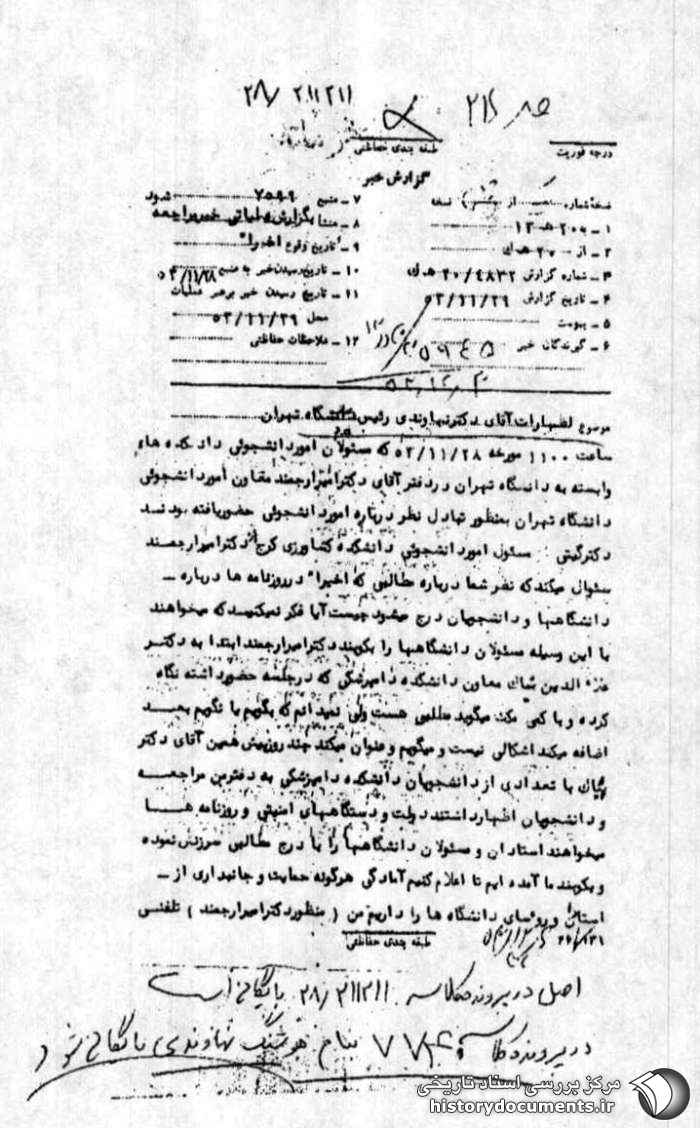 ۲۸/ ۲۱۱۲۱۱
درجه فوریت
طبقه بندی حفاظتی
گزارش خبر
نسخه شماره از نسخه
۷ - منبع ۷۵۹۹
۱ - ۲۰۰ ه ۱۲
۸ - منشا بگزارش عملیاتی خبر مراجعه شود
۲ - از ۲۰ ه ک
۹ - تاریخ وقوع اخیرا"
۳ - شماره گزارش ۲۰/۴۸۳۲ ه ک
۱۰ - تاریخ رسیدن خبر به منبع ۵۳/۱۱/۲۸
۴ - تاریخ گزارش ۵۳/۱۱/۲۹
۱۱ - تاریخ رسیدن خبر برهبر عملیات
محل ۵۳/۱۱/۲۹
۵ - پیوست
۶ - گیرندگان خبر
۱۲ - ملاحظات حفاظتی
۵۹۴۵
موضوع اظهارات آقای دکتر نهاوندی رئیس دانشگاه تهران
ساعت ۱۱۰۰ مورخه ۵۳/۱۱/۲۸ که مسئولان امور دانشجوئی دانشکده های
وابسته به دانشگاه تهران در دفتر آقای دکتر امیرارجمند معاون امور دانشجوئی
دانشگاه تهران بمنظور تبادل نظر درباره امور دانشجوئی حضور یافته بودند
دکتر گیتی مسئول امور دانشجوئی دانشکده کشاورزی کرج از دکتر امیرارجمند
سئوال میکند که نظر شما درباره مطالبی که اخیرا" در روزنامه ها درباره -
دانشگاهها و دانشجویان درج میشود چیست آیا فکر نمیکنید که میخواهند
با این وسیله مسئولان دانشگاهها را بکوبند دکتر امیرارجمند ابتدا به دکتر
عزالدین معاون دانشکده دامپزشکی که در جلسه حضور داشته نگاه
کرده و با کمی مکث میگوید مطلبی هست ولی نمیدانم که بگویم یا نگویم بعد
اضافه میکند اشکالی نیست و میگویم و عنوان میکند چند روز پیش همین آقای دکتر
با تعدادی از دانشجویان دانشکده دامپزشکی به دفتر من مراجعه
و دانشجویان اظهار داشتند دولت و دستگاههای امنیتی و روزنامه ها
میخواهند استادان و مسئولان دانشگاهها را با درج مطالبی سرزنش نموده
و بکوبند ما آمده ایم تا اعلام کنیم آمادگی هرگونه حمایت و جانبداری از -
استادان و روسای دانشگاه ها را داریم من ( منظور دکتر امیرارجمند ) تلفنی
طبقه بندی حفاظتی
اصل در پرونده کلاسه ۲۱۱۲۱۱ /۲۸ بایگانی است
در پرونده کلاسه ۷۷۴۰ بنام هوشنگ نهاوندی بایگانی شود
مرکز بررسی اسناد تاریخی
historydocuments.ir